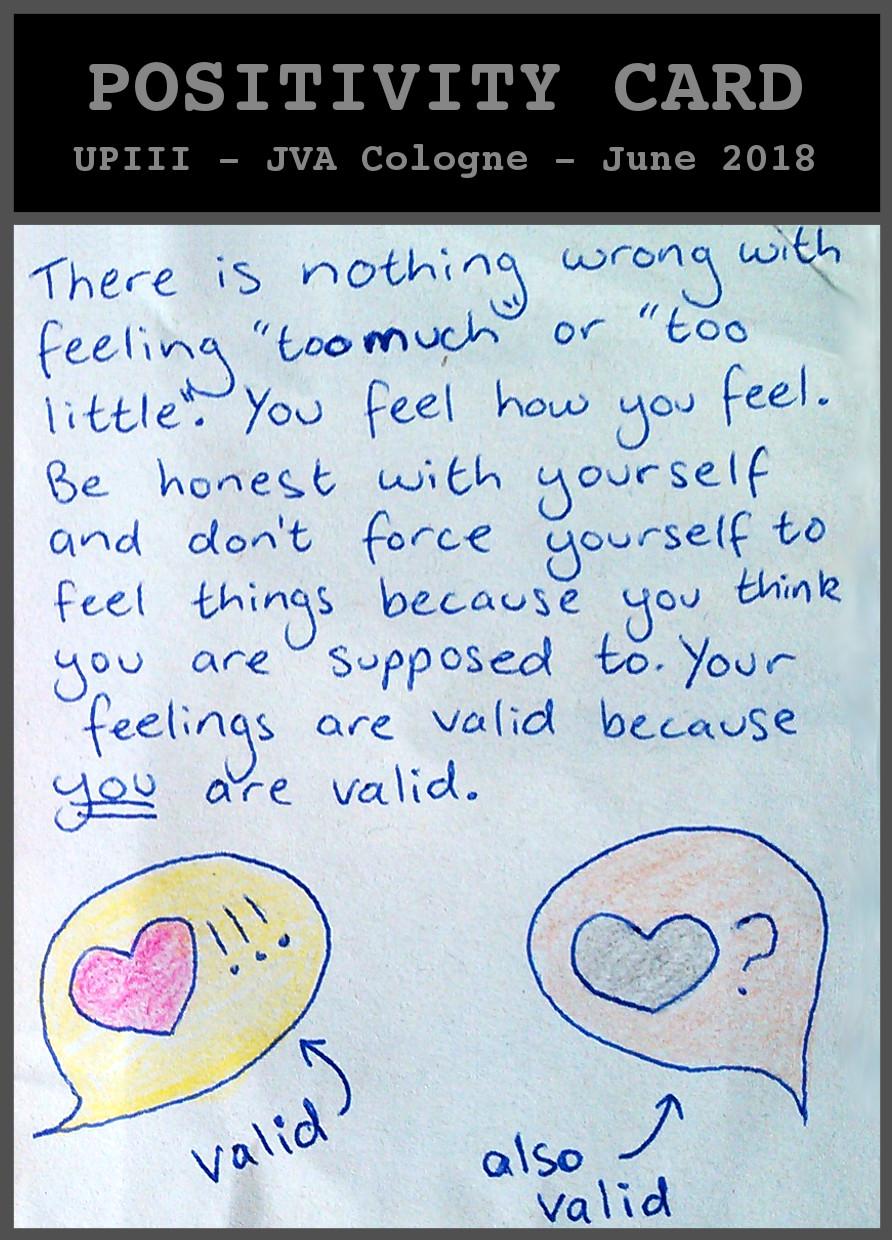 POSITIVITY CARD
UPIII - JVA Cologne - June 2018
There is nothing wrong with
feeling "too much" or "too
little". You feel how you feel.
Be honest with yourself
and don't force yourself to
feel things because you think
you are supposed to. Your
feelings are valid because
you are valid.
!!!
?
valid
also
valid